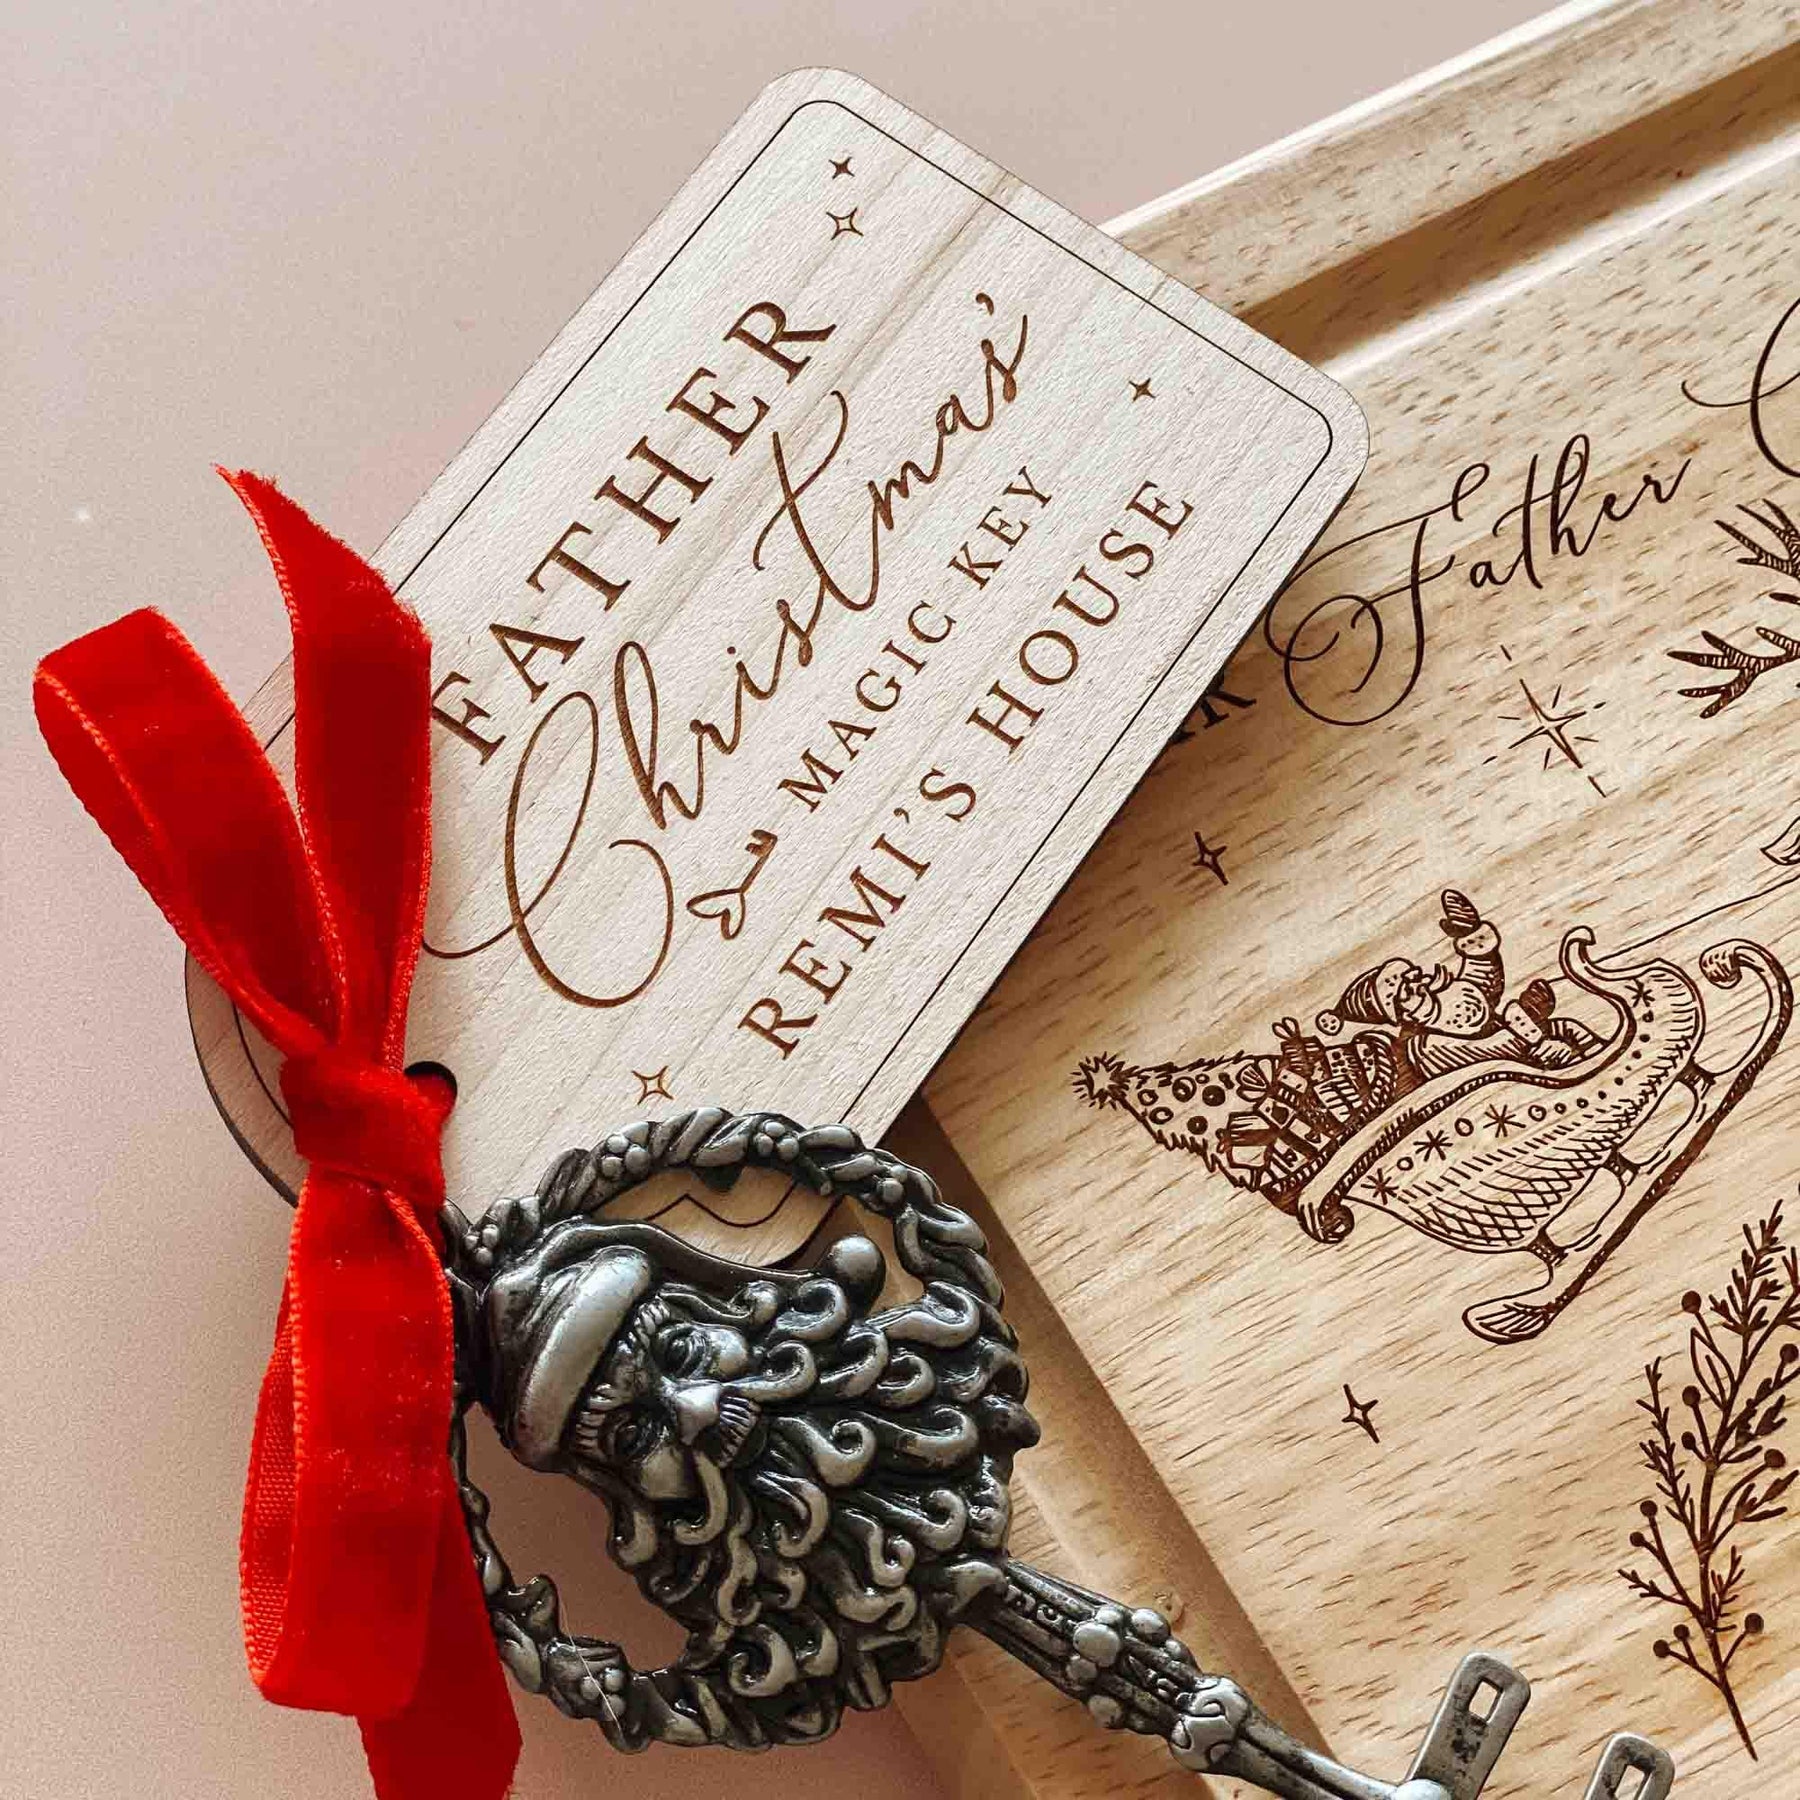 FATHER
Christmas'
MAGIC KEY
REMI'S HOUSE
Father